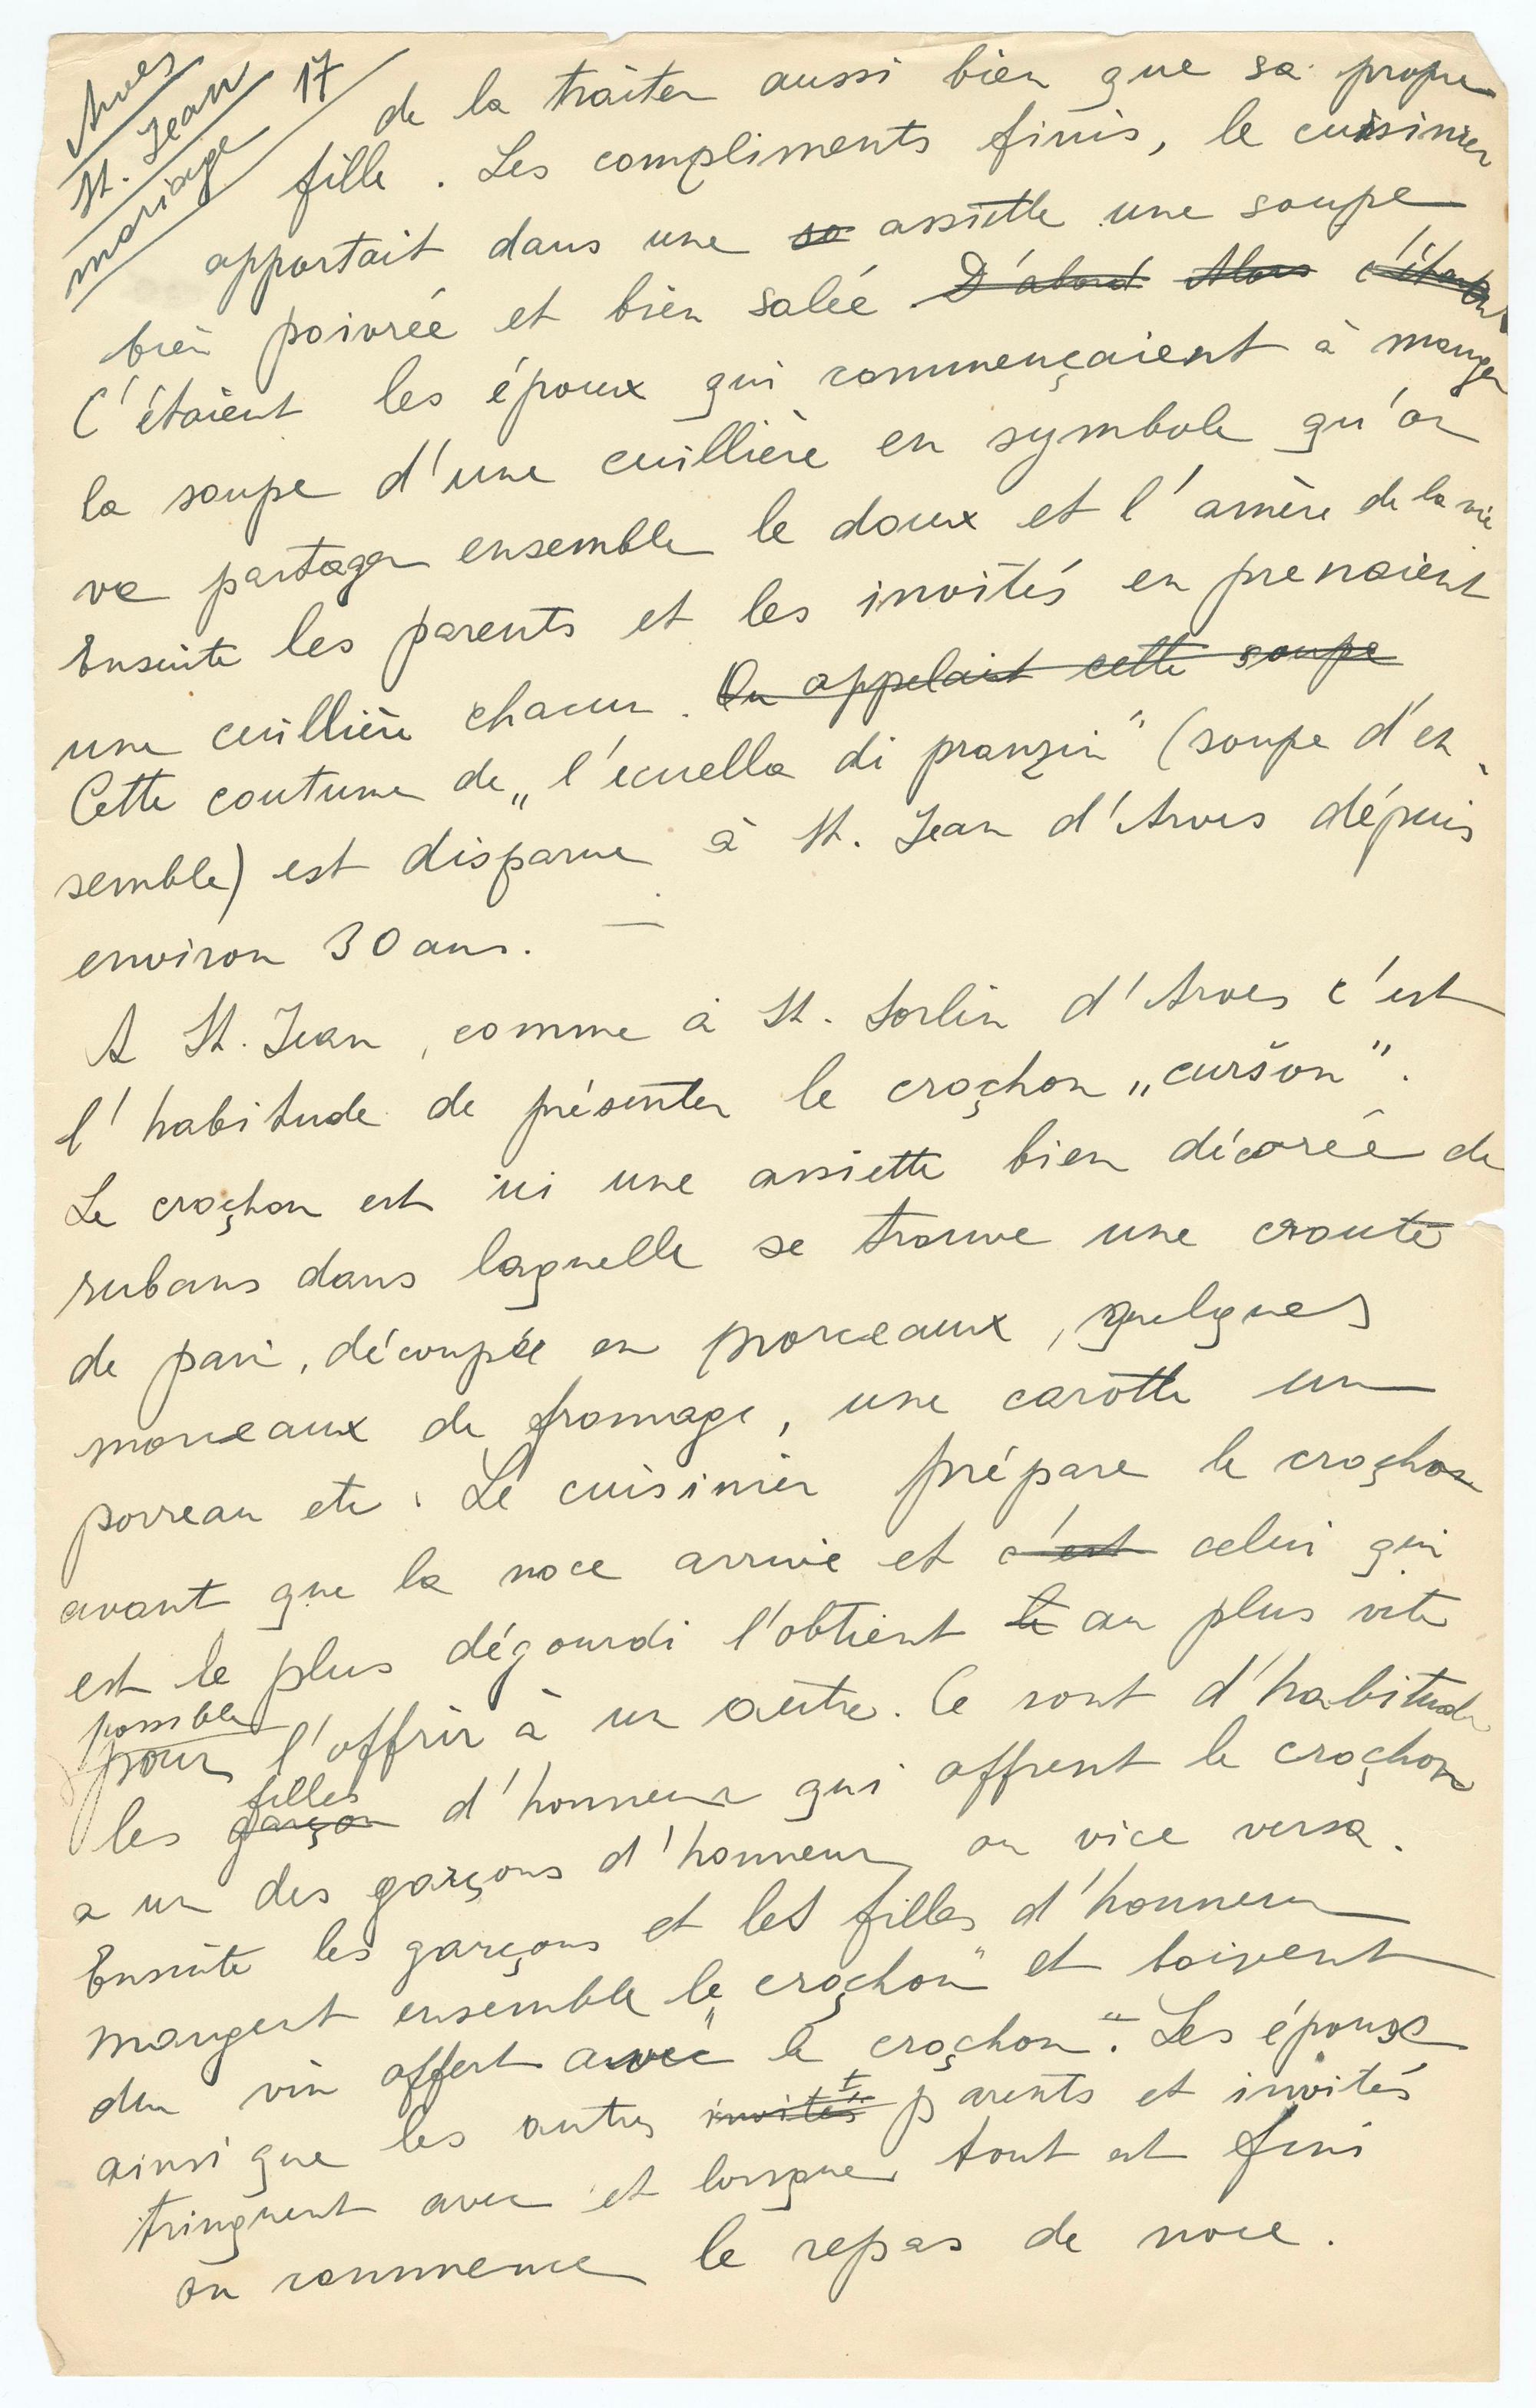 Arves
St. Jean
mariage
17
de la traiter aussi bien que sa propre
fille. Les compliments finis, le cuisinier
apportait dans une so assiette une soupe
bien poivrée et bien salée. D'abord Alors c'étaient
C'étaient les époux qui commençaient à manger
la soupe d'une cuillière en symbole qu'on
va partager ensemble le doux et l'amère de la vie
Ensuite les parents et les invités en prenaient
une cuillière chacun. On appelait cette soupe
Cette coutume de „l'ecuella di pranzin" (soupe d'en-
semble) est disparue à St. Jean d'Arves dépuis
environ 30 ans. —
A St. Jean, comme à St. Sorlin d'Arves c'est
l'habitude de présenter le croçhon „curšon".
Le croçhon est ici une assiette bien décorée de
rubans dans laquelle se trouve une croute
de pain, découpée en morceaux, quelques
morceaux de fromage, une carotte un
porreau etc. Le cuisinier prépare le croçhon
avant que la noce arrive et c'est celui qui
est le plus dégourdi l'obtient le au plus vite
possible
pour l'offrir à un autre. Ce sont d'habitude
filles
les garçon d'honneur qui offrent le croçhon
a un des garçons d'honneur, ou vice versa.
Ensuite les garçons et les filles d'honneur
mangent ensemble le „croçhon" et boivent
du vin offert avec le croçhon". Les époux
ainsi que les autres invités parents et invités
trinquent avec et lorsque tout est fini
on commence le repas de noce.